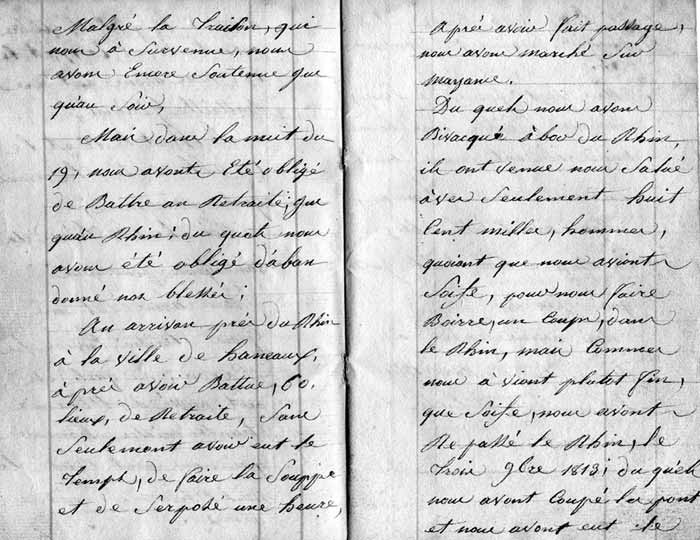 Malgré la Traison, qui
nous à Survenue, nous
avons Encore Soutenue jus
qu'au Soir,
Mais dans la nuit du
19, nous avonts Eté obligé
de Battre au Retraite, jus
qu'au Rhin; du quels nous
avons été obligé d'aban
donné nos blessés;
An arrivan prés du Rhin
à la ville de haneaux,
à prés avoir Battue, 60.
lieux, de Retraite, Sans
Seulemont avoir eut le
Temps, de faire la Souppe
et de Serposé une heure,
Aprés avoir fait passage,
nous avons marché Sur
mayance.
Du quels nous avons
Bivacqué à bor du Rhin,
ils ont venue nous Salué
àvec Seulement huit
Cent milles, hommes,
quoiant que nous aviont
Soife, pour nous faire
Boirre, un Coups, dans
le Rhin, mais Commes
nous à viont plutot fin,
que Soife, nous avont
Re passé le Rhin, le
Trois 9bre 1813; du quels
nous avont Coupé les pont
et nous avont eut le